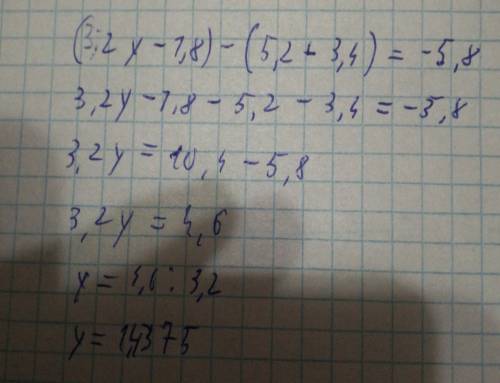 (3,2y-1,8)-(5,2+3,4)=-5,8
3,2y-1,8-5,2-3,4=-5,8
3,2y=10,4-5,8
3,2y=4,6
y=4,6:3,2
y=1,4375